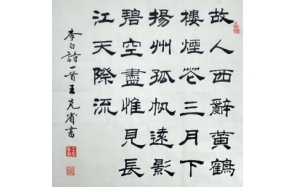 故人西辭黃鶴
樓煙花三月下
揚州孤帆遠影
碧空盡惟見長
江天際流
李白詩一首王克省書